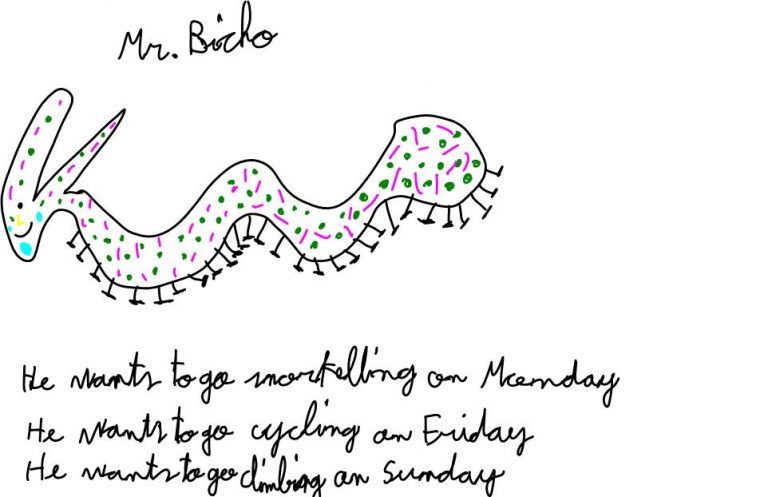 Mr. Bicho
He wants to go snorkelling on Monday
He wants to go cycling on Friday
He wants to go climbing on Sunday